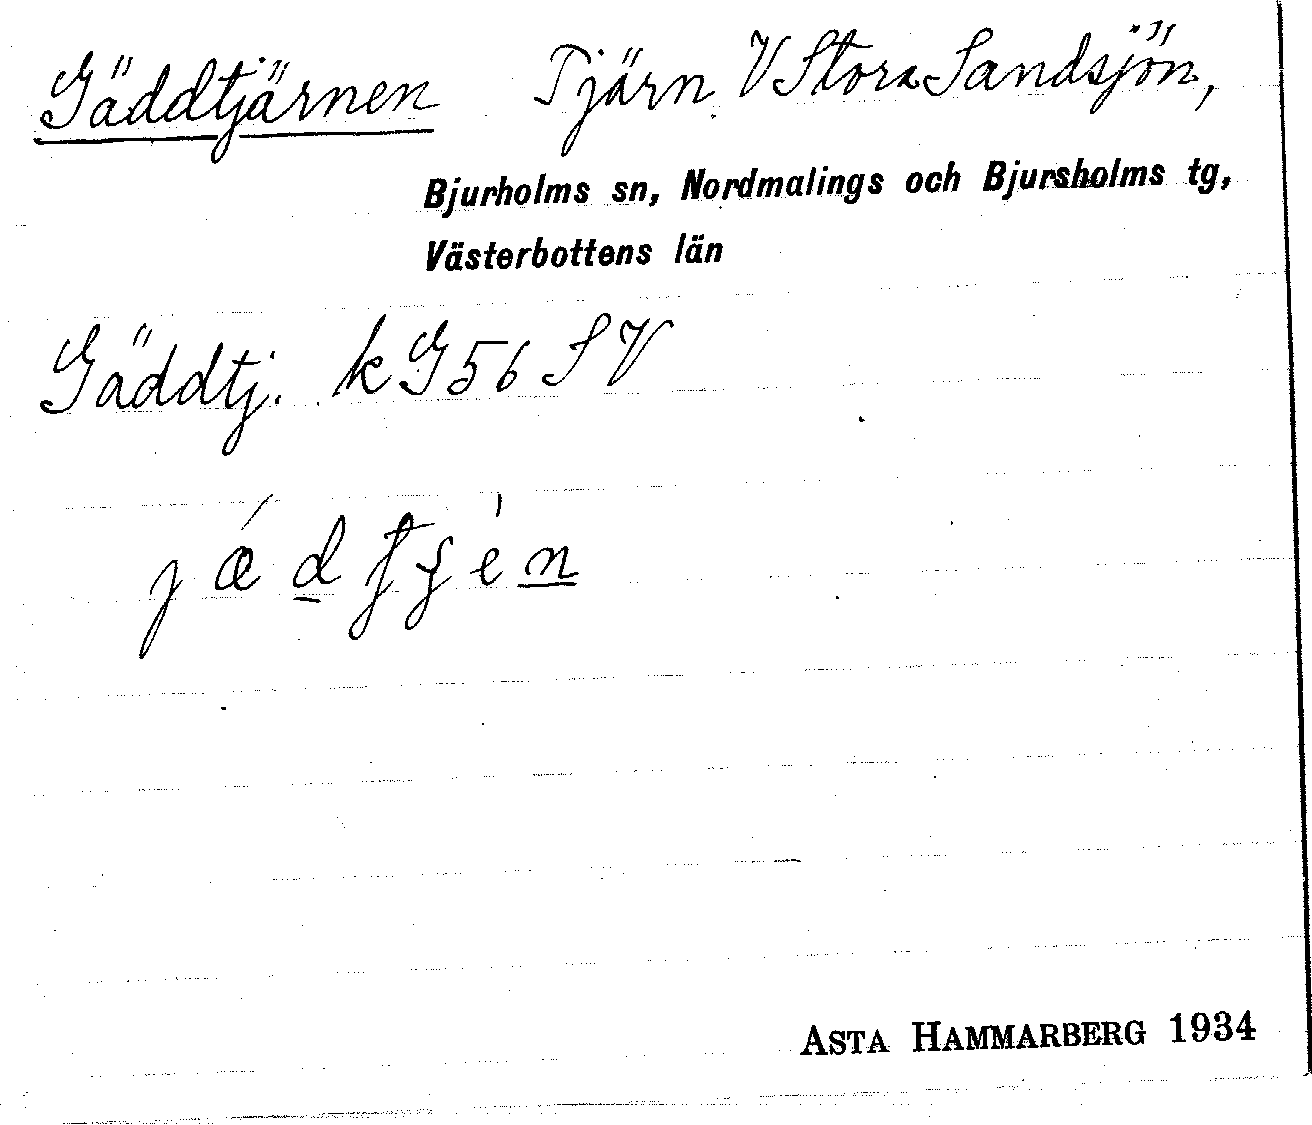 Gäddtjärnen Tjärn V Stora Sandsjön,
Bjurholms sn, Nordmalings och Bjursholms tg,
Västerbottens län
Gäddtj. kG56 SV
ASTA HAMMARBERG 1934